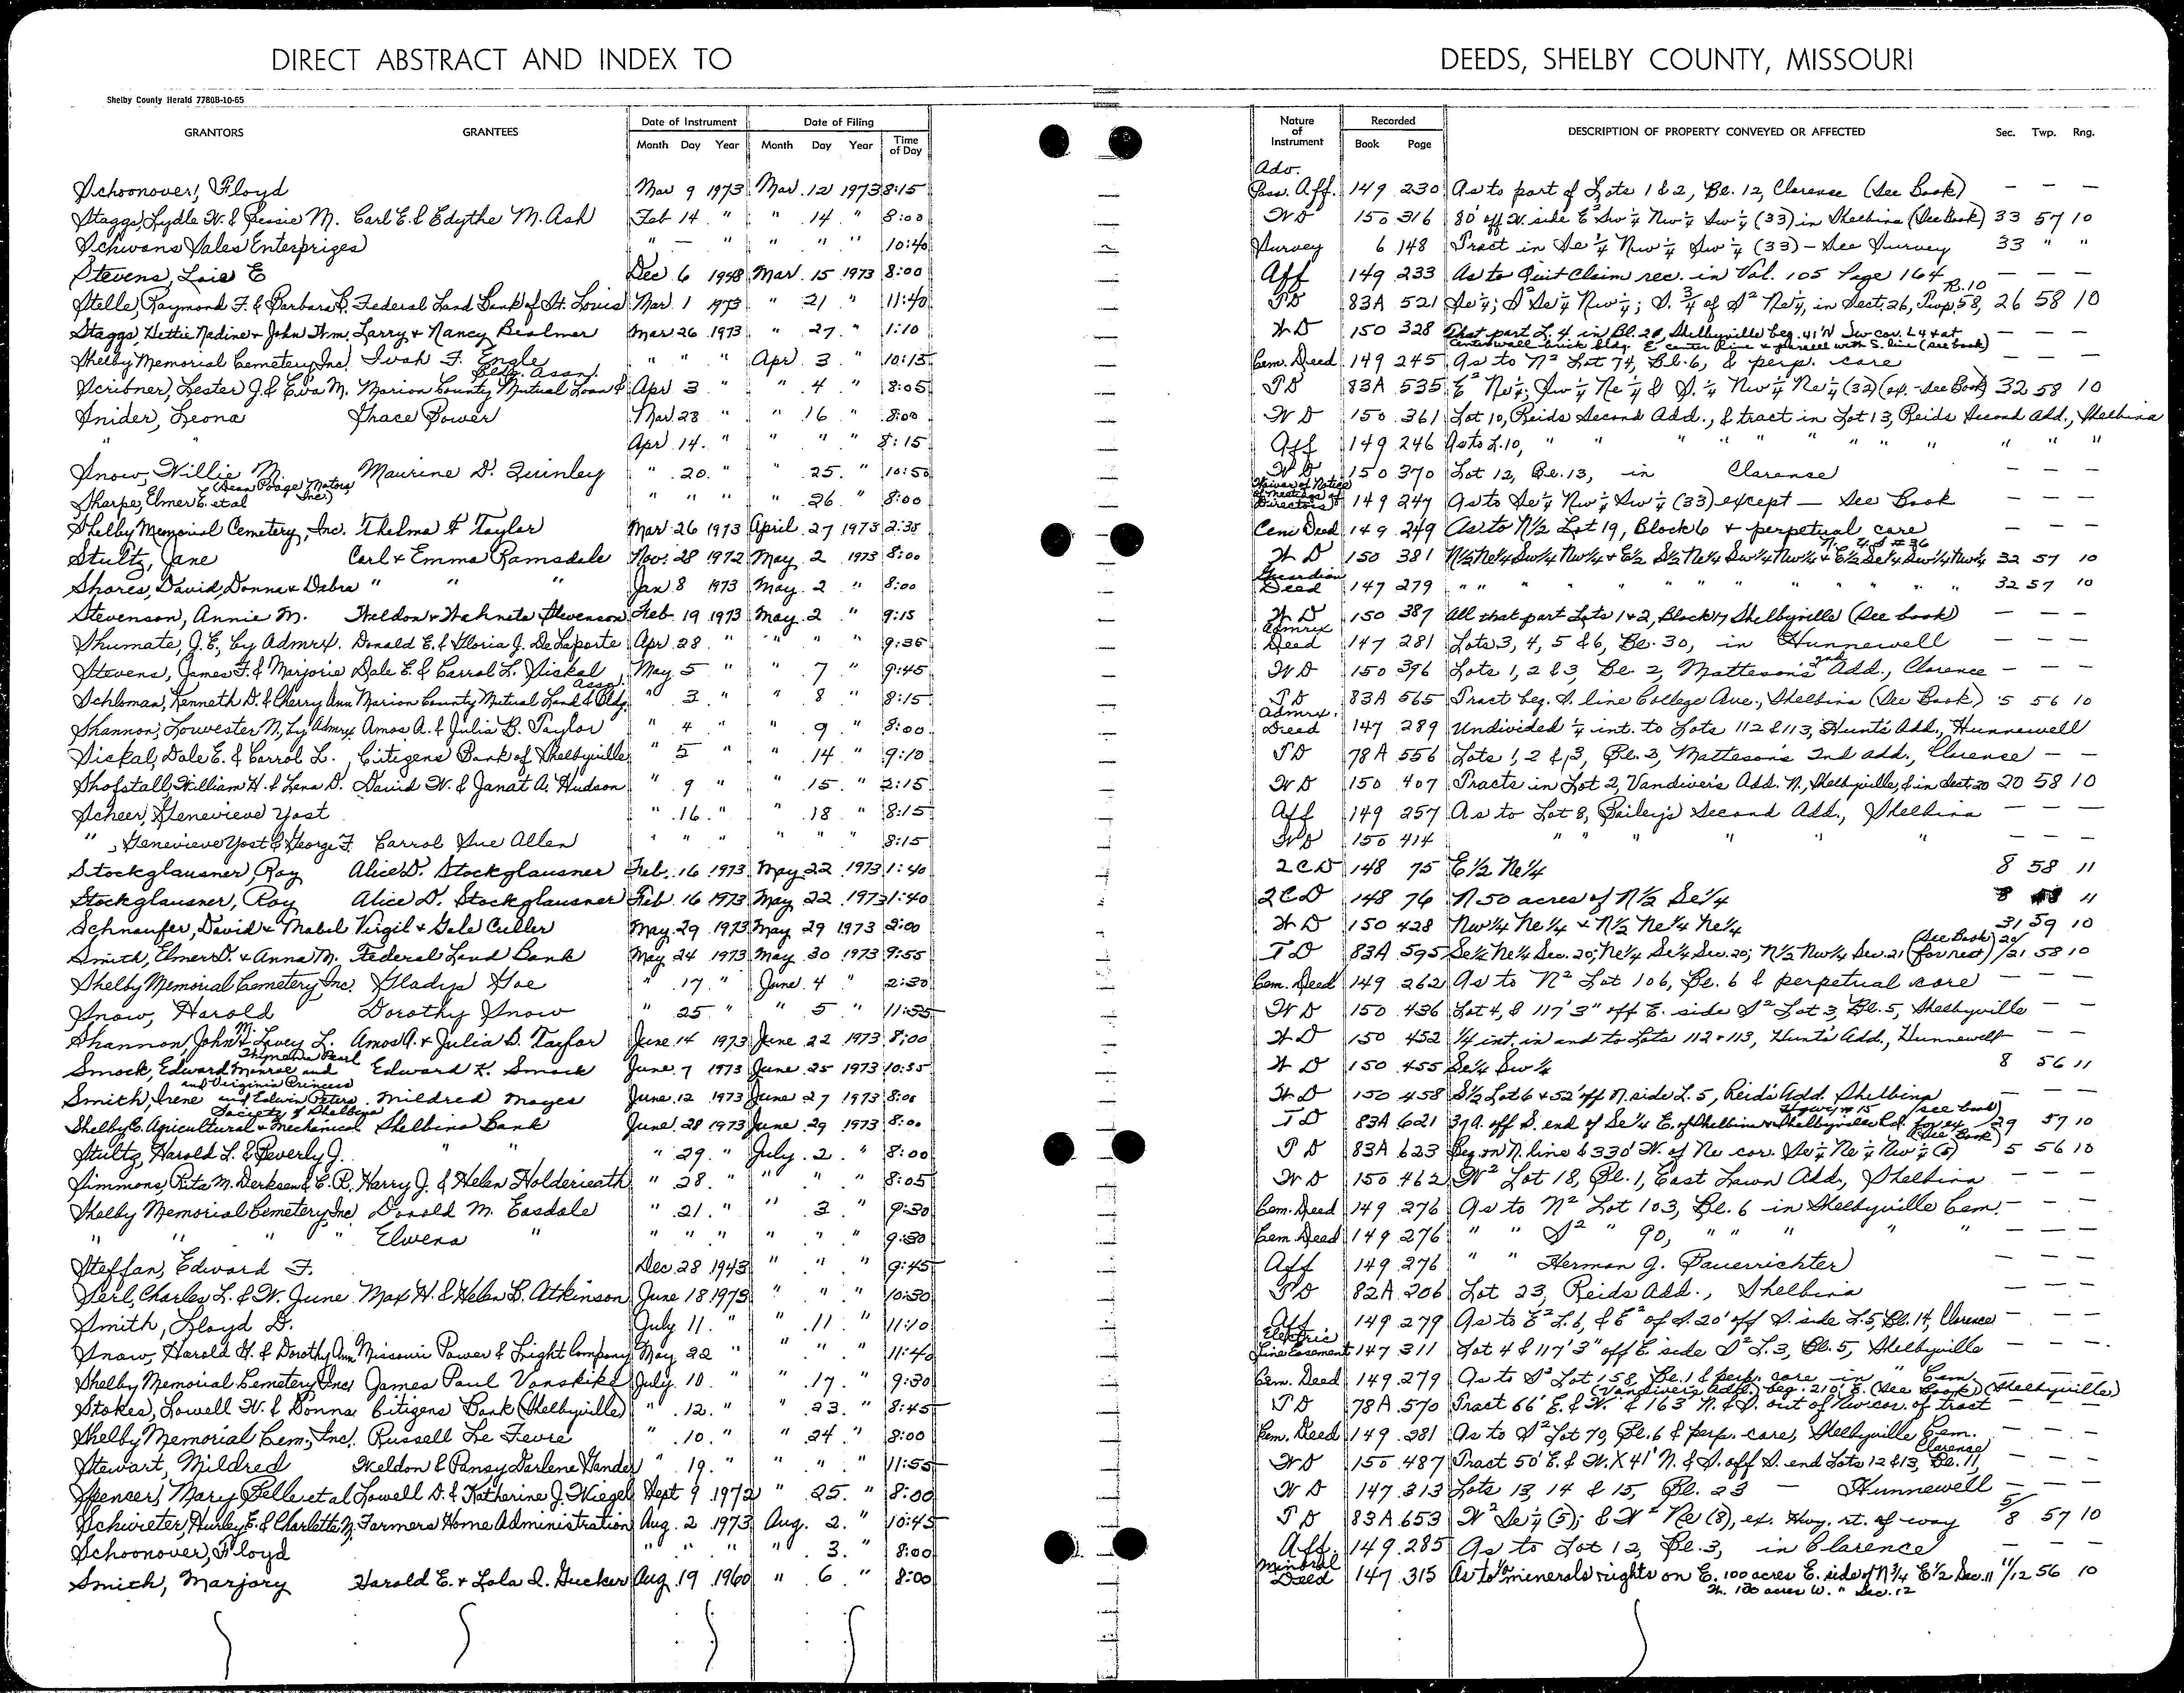 DIRECT ABSTRACT AND INDEX TO DEEDS, SHELBY COUNTY, MISSOURI
Shelby County Herald 7780B-10-65
GRANTORS GRANTEES Date of Instrument Date of Filing Nature of Instrument Recorded DESCRIPTION OF PROPERTY CONVEYED OR AFFECTED Sec. Twp. Rng.
Month Day Year Month Day Year Time of Day Book Page
Schoonover, Floyd Mar 9 1973 Mar. 12 1973 8:15 Adv. Poss. Aff. 149 230 As to part of Lots 1 & 2, Bl. 12, Clarence (See Book) — — —
Staggs, Lydle W. & Jessie M. Carl E. & Edythe M. Ash Feb 14 " " 14 " 8:00 WD 150 316 80' off W. side E² Sw ¼ Nw ¼ Sw ¼ (33) in Shelbina (See Book) 33 57 10
Schwans Sales Enterprizes " — " " " " 10:40 Survey 6 148 Tract in Se ¼ Nw ¼ Sw ¼ (33) - See Survey 33 " "
Stevens, Lois E Dec 6 1958 Mar. 15 1973 8:00 Aff 149 233 As to Quit Claim rec. in Vol. 105 Page 164 — — —
Stelle, Raymond F. & Barbara B. Federal Land Bank of St. Louis Mar 1 1973 " 21 " 11:40 TD 83A 521 Se ¼; S² Se ¼ Nw ¼; S. ¾ of S² Ne ¼, in Sect. 26, Twp. 58, R. 10 26 58 10
Staggs, Hettie Nadine & John Wm. Larry & Nancy Bialmer Mar 26 1973 " 27 " 1:10 WD 150 328 That part L. 4 in Bl. 20, Shelbyville beg. 41' N Sw cor. L4 & at center wall brick bldg. E center line & parallel with S. line (see book) — — —
Shelby Memorial Cemetery, Inc. Ivah F. Engle " " " Apr 3 " 10:15 Cem. Deed 149 245 As to N² Lot 74, Bl. 6, & perp. care — — —
Scribner, Lester J. & Eva M. Marion County Mutual Loan & Bldg. Assn. Apr 3 " " 4 " 8:05 TD 83A 535 E² Ne ¼; Sw ¼ Ne ¼ & S. ¼ Nw ¼ Ne ¼ (32) (ex. - See Book) 32 58 10
Snider, Leona Grace Bower Mar 28 " " 16 " 8:00 WD 150 361 Lot 10, Reids Second Add., & tract in Lot 13, Reids Second Add., Shelbina
" " Apr 14. " " " " 8:15 Aff 149 246 As to L. 10, " " " " " " " " " " "
Snow, Willie M. Maurine D. Quinley " 20. " " 25. " 10:50 WD 150 370 Lot 12, Bl. 13, in Clarence — — —
Sharpe, Elmer E. et al (Dean Poage Motors, Inc.) " " " " 26 " 8:00 Waiver of Notice of Meeting of Directors 149 247 As to Se ¼ Nw ¼ Sw ¼ (33) except — See Book — — —
Shelby Memorial Cemetery, Inc. Thelma F Taylor Mar 26 1973 April 27 1973 2:35 Cem Deed 149 249 As to N½ Lot 19, Block 6 & perpetual care — — —
Stultz, Jane Carl & Emma Ramsdale Nov. 28 1972 May 2 1973 8:00 WD 150 381 N½ Ne¼ Sw¼ Nw¼ & E½ S½ Ne¼ Sw¼ Nw¼ & E½ Se¼ Sw¼ Nw¼ N. U.S #36 32 57 10
Shores, David, Donna & Debra " " " Jan 8 1973 May. 2 " 8:00 Guardian Deed 147 279 " " " " " " " " " " 32 57 10
Stevenson, Annie M. Weldon & Wahneta Stevenson Feb 19 1973 May. 2 " 9:15 WD 150 387 All that part Lots 1 & 2, Block 17 Shelbyville (See book) — — —
Shumate, J. E., by Admrx. Donald E. & Gloria J. De Laporte Apr 28 " " " " 9:35 Admrx Deed 147 281 Lots 3, 4, 5 & 6, Bl. 30, in Hunnewell — — —
Stevens, James F. & Marjorie Dale E. & Carrol L. Siskal May 5 " " 7 " 9:45 WD 150 396 Lots 1, 2 & 3, Bl. 2, Matteson's 2nd Add., Clarence — — —
Schloman, Kenneth D. & Cherry Ann Marion County Mutual Land & Bldg. Assn. " 3 " " 8 " 8:15 TD 83A 565 Tract beg. S. line College Ave., Shelbina (See Book) 5 56 10
Shannon, Lowester N., by Admrx Amos A. & Julia B. Taylor " 4 " " 9 " 8:00 Admrx. Deed 147 289 Undivided ¼ int. to Lots 112 & 113, Hunt's Add., Hunnewell
Siskal, Dale E. & Carrol L. Citizens Bank of Shelbyville " 5 " " 14 " 9:10 TD 78A 556 Lots 1, 2 & 3, Bl. 2, Matteson's 2nd add., Clarence — —
Shofstall, William H. & Lena D. David W. & Janat A. Hudson " 9 " " 15. " 2:15 WD 150 407 Tracts in Lot 2, Vandiver's Add. N., Shelbyville, & in Sect. 20 20 58 10
Scheer, Genevieve Yost " 16. " " 18 " 8:15 Aff 149 257 As to Lot 8, Bailey's Second Add., Shelbina — — —
" , Genevieve Yost & George F. Carrol Sue Allen " " " " " " 8:15 WD 150 414 " " " " " — — —
Stockglausner, Roy Alice D. Stockglausner Feb. 16 1973 May 22 1973 1:40 2CD 148 75 E½ Ne¼ 8 58 11
Stockglausner, Roy Alice D. Stockglausner Feb 16 1973 May 22 1973 1:40 2CD 148 76 N 50 acres of N½ Se¼ 8 58 11
Schnaufer, David & Mabel Virgil & Gale Culler May 29 1973 May 29 1973 2:00 WD 150 428 Nw¼ Ne¼ & N½ Ne¼ Ne¼ 31 59 10
Smith, Elmer D. & Anna M. Federal Land Bank May 24 1973 May 30 1973 9:55 TD 83A 595 Se¼ Ne¼ Sec. 20; Ne¼ Se¼ Sec. 20; N½ Nw¼ Sec. 21 (See Book for rest) 20/21 58 10
Shelby Memorial Cemetery, Inc. Gladys Goe " 17 " June 4 " 2:30 Cem. Deed 149 262 As to N² Lot 106, Bl. 6 & perpetual care — — —
Snow, Harold Dorothy Snow " 25 " " 5 " 11:35 WD 150 436 Lot 4, & 117' 3" off E. side S² Lot 3, Bl. 5, Shelbyville — —
Shannon, John M. & Lovey L. Amos A. & Julia B. Taylor June 14 1973 June 22 1973 8:00 WD 150 452 ¼ int. in and to Lots 112 & 113, Hunt's Add., Hunnewell — —
Smock, Edward Monroe and Thymenia Pearl Edward K. Smock June 7 1973 June 25 1973 10:35 WD 150 455 Se¼ Sw¼ 8 56 11
Smith, Irene and Virginia Princess and Edwin Peters Mildred Mayes June 12 1973 June 27 1973 8:00 WD 150 458 S½ Lot 6 & 52' off N. side L. 5, Reid's Add. Shelbina — — —
Shelby C. Agricultural & Mechanical Society of Shelbina Shelbina Bank June 28 1973 June 29 1973 8:00 TD 83A 621 37 A. off S. end of Se¼ E. of Shelbina & Shelbyville Rd. Hgwy # 15 for ex (see book) 29 57 10
Stultz, Harold L. & Beverly J. " " " 29. " July. 2. " 8:00 TD 83A 623 Beg. on N. line & 330' W. of Ne cor. Se ¼ Ne ¼ Nw ¼ (5) (See Book) 5 56 10
Simmons, Rita M. Derksen & C. R. Harry J. & Helen Holderieath " 28. " " " " 8:05 WD 150 462 W² Lot 18, Bl. 1, East Lawn Add., Shelbina — — —
Shelby Memorial Cemetery, Inc Donald M. Easdale " 21. " " 3 " 9:30 Cem. Deed 149 276 As to N² Lot 103, Bl. 6 in Shelbyville Cem. — — —
" " " " Elwena " " " " " " " 9:30 Cem. Deed 149 276 " " S² " 90, " " " " " — — —
Steffan, Edward F. Dec 28 1943 " " " 9:45 Aff 149 276 " " Herman G. Bauerrichter) — — —
Serl, Charles L. & W. June Max H. & Helen B. Atkinson June 18 1973 " " " 10:30 TD 82A 206 Lot 23, Reids Add., Shelbina — — —
Smith, Lloyd D. July 11. " " 11 " 11:10 Aff 149 279 As to E² L. 6, & E² of S. 20' off S. side L. 5, Bl. 14, Clarence — — —
Snow, Harold H. & Dorothy Ann Missouri Power & Light Company May 22 " " " " 11:40 Electric Line Easement 147 311 Lot 4 & 117' 3" off E. side S² L. 3, Bl. 5, Shelbyville — — —
Shelby Memorial Cemetery, Inc James Paul Vanskike July. 10 " " 17. " 9:30 Cem. Deed 149 279 As to S² Lot 158 Bl. 1 & perp. care in " Cem. — — —
Stokes, Lowell W. & Donna Citizens Bank (Shelbyville) " 12. " " 23. " 8:45 TD 78A 570 Tract 66' E. & W. & 163' N. & S. out of Nw cor. of tract (Vandiver's Add.) beg. 210' E. (See Book) (Shelbyville) — — —
Shelby Memorial Cem., Inc. Russell Le Fevre " 10. " " 24 " 8:00 Cem. Deed 149 281 As to S² Lot 70, Bl. 6 & perp. care, Shelbyville Cem. — — —
Stewart, Mildred Weldon & Pansy Darlene Gander " 19. " " " " 11:55 WD 150 487 Tract 50' E. & W. X 41' N. & S. off S. end Lots 12 & 13, Bl. 11, Clarence — — —
Spencer, Mary Belle et al Lowell D. & Katherine J. Wiegel Sept 9 1972 " 25. " 8:00 WD 147 313 Lots 13, 14 & 15, Bl. 23 — Hunnewell — — —
Schwieter, Hurley E. & Charlette N. Farmers Home Administration Aug. 2 1973 Aug. 2. " 10:45 TD 83A 653 W² Se ¼ (5); & W² Ne (8), ex. Hwy. rt. of way 5/8 57 10
Schoonover, Floyd " " " " 3. " 8:00 Aff. 149 285 As to Lot 12, Bl. 3, in Clarence — — —
Smith, Marjory Harold E. & Lola I. Gucker Aug. 19 1960 " 6 " 8:00 Mineral Deed 147 315 As to ½ minerals rights on E. 100 acres E. side of N¾ E½ Sec. 11 11/12 56 10
W. 100 acres W. " Sec. 12